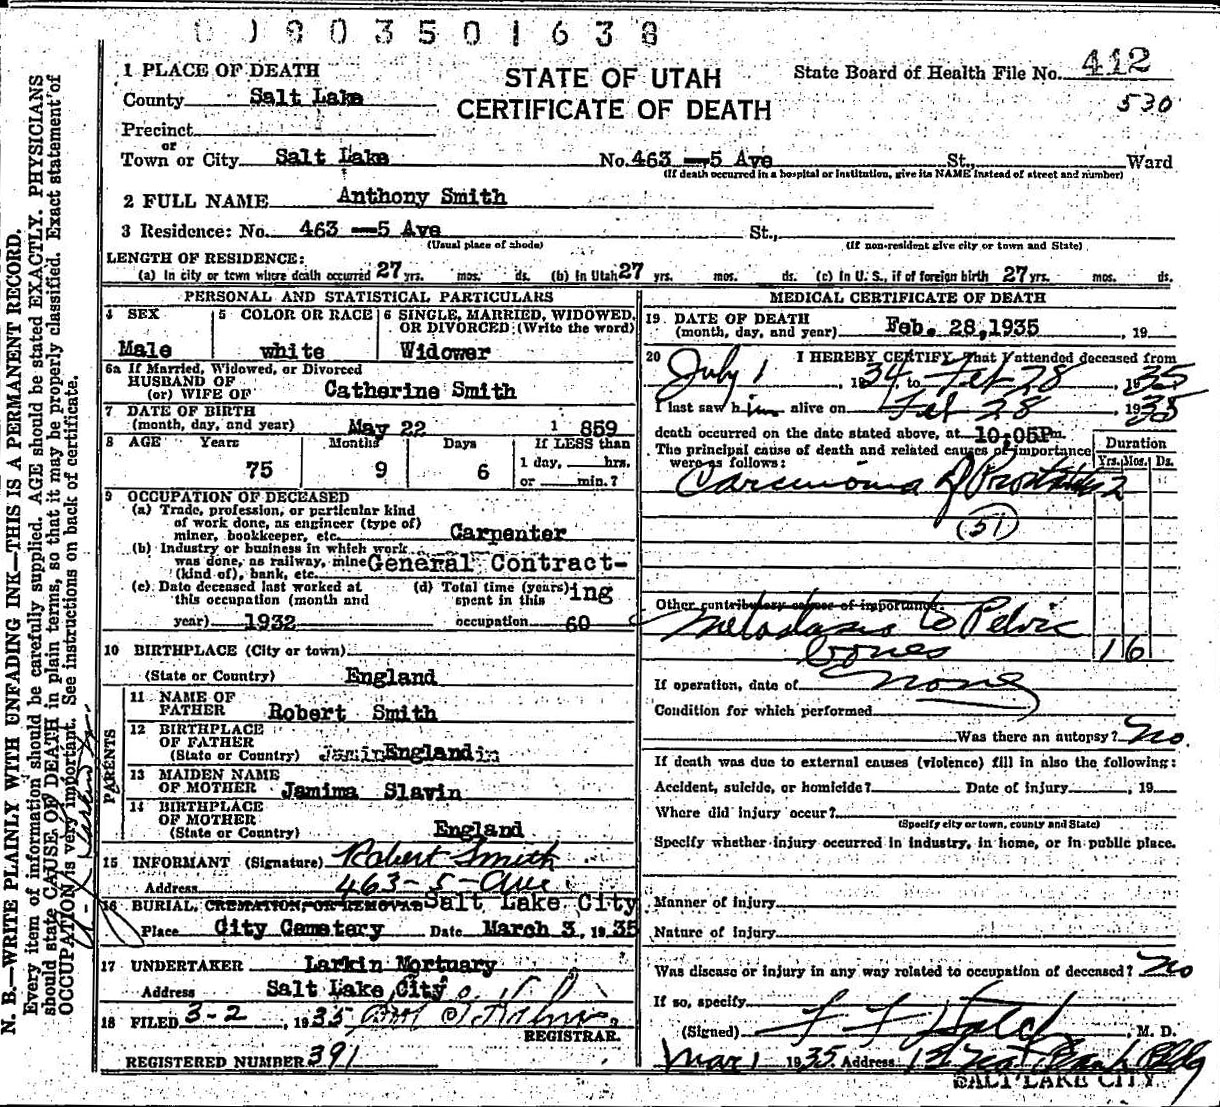 0 1 9 0 3 5 0 1 6 3 8
STATE OF UTAH
CERTIFICATE OF DEATH
State Board of Health File No. 412
530
1 PLACE OF DEATH
County Salt Lake
Precinct
or
Town or City Salt Lake No. 463 —5 Ave St., Ward
(If death occurred in a hospital or institution, give its NAME instead of street and number)
2 FULL NAME Anthony Smith
3 Residence: No. 463 —5 Ave St.,
(Usual place of abode) (If non-resident give city or town and State)
LENGTH OF RESIDENCE:
(a) In city or town where death occurred 27 yrs. mos. ds. (b) In Utah 27 yrs. mos. ds. (c) In U. S., if of foreign birth 27 yrs. mos. ds.
PERSONAL AND STATISTICAL PARTICULARS
4 SEX Male
5 COLOR OR RACE white
6 SINGLE, MARRIED, WIDOWED, OR DIVORCED (Write the word) Widower
6a If Married, Widowed, or Divorced
HUSBAND OF
(or) WIFE OF Catherine Smith
7 DATE OF BIRTH
(month, day, and year) May 22 1 859
8 AGE Years Months Days If LESS than
75 9 6 1 day, hrs.
or min.?
9 OCCUPATION OF DECEASED
(a) Trade, profession, or particular kind
of work done, as engineer (type of)
miner, bookkeeper, etc. Carpenter
(b) Industry or business in which work
was done, as railway, mine General Contract-
(kind of), bank, etc. ing
(c) Date deceased last worked at
this occupation (month and
year) 1932
(d) Total time (years)
spent in this
occupation 60
10 BIRTHPLACE (City or town)
(State or Country) England
PARENTS
11 NAME OF
FATHER Robert Smith
12 BIRTHPLACE
OF FATHER
(State or Country) England
13 MAIDEN NAME
OF MOTHER Jamima Slavin
14 BIRTHPLACE
OF MOTHER
(State or Country) England
15 INFORMANT (Signature) Robert Smith
Address 463-5-Ave
16 BURIAL, CREMATION, OR REMOVAL Salt Lake City
Place City Cemetery Date March 3, 1935
17 UNDERTAKER Larkin Mortuary
Address Salt Lake City
18 FILED 3-2, 1935
REGISTRAR.
REGISTERED NUMBER 391
MEDICAL CERTIFICATE OF DEATH
19 DATE OF DEATH
(month, day, and year) Feb. 28, 1935 , 19
20 I HEREBY CERTIFY, That I attended deceased from
July 1, 1934, to Feb 28, 1935
I last saw him alive on Feb 28 1935
death occurred on the date stated above, at 10:05Pm.
The principal cause of death and related causes of importance
were as follows:
Duration
Yrs. Mos. Ds.
Carcinoma of Prostate 2
(51)
Other contributory causes of importance:
Metastasis to Pelvic
bones 1 6
If operation, date of none
Condition for which performed
Was there an autopsy? No.
If death was due to external causes (violence) fill in also the following:
Accident, suicide, or homicide? Date of injury , 19
Where did injury occur?
(Specify city or town, county and State)
Specify whether injury occurred in industry, in home, or in public place.
Manner of injury
Nature of injury
Was disease or injury in any way related to occupation of deceased? No
If so, specify
(Signed) F F Hatch, M. D.
Mar 1 1935 Address 1st Nat Bank Bldg
SALT LAKE CITY
N. B.—WRITE PLAINLY WITH UNFADING INK—THIS IS A PERMANENT RECORD.
Every item of information should be carefully supplied. AGE should be stated EXACTLY. PHYSICIANS
should state CAUSE OF DEATH in plain terms, so that it may be properly classified. Exact statement of
OCCUPATION is very important. See instructions on back of certificate.